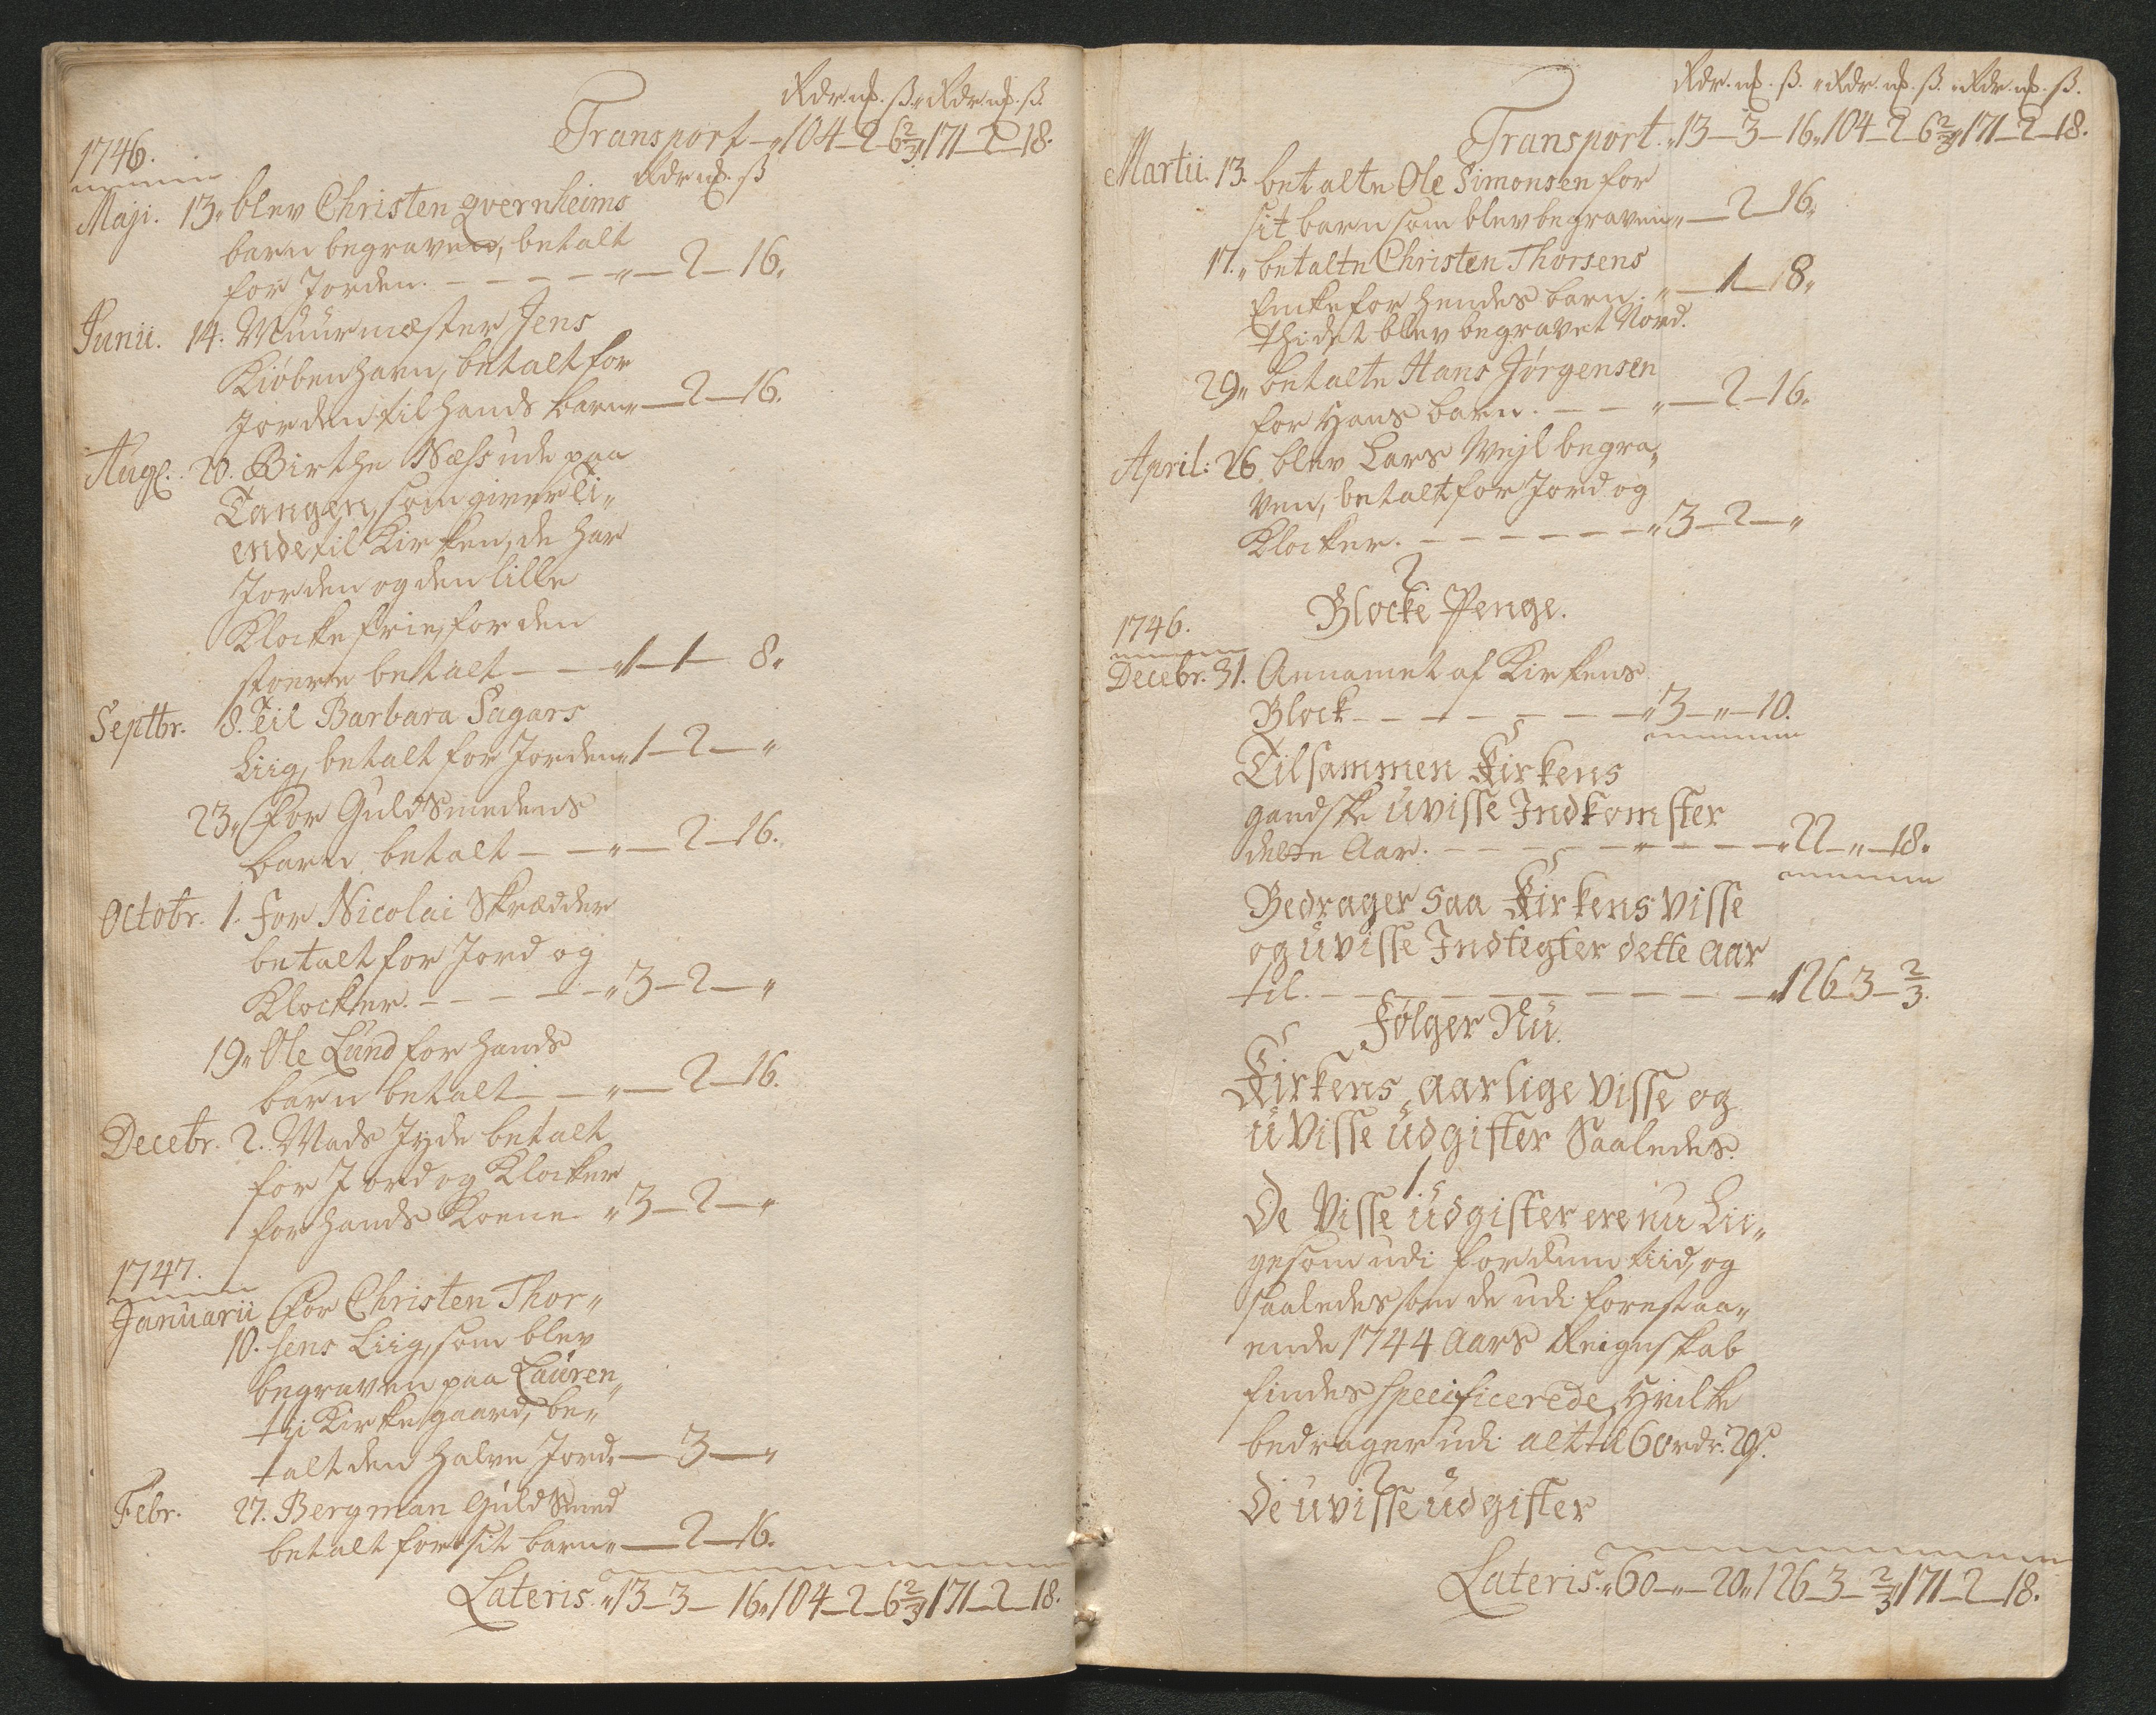 Rdr. mſ. ß. „ Rdr. mſ. ß.
Transport — „ 104 — 2 — 6 2/3 „ 171 — 2 — 18.
1746.
Rdr mſ. ß
Maji. 13. blev Christen Qvernheims
barn begraven, betalt
for Jorden. — — — — „ — 2 — 16.
Junii. 14. Muurmæster Jens
Kiøbenhavn, betalt for
Jorden til hands barn „ — 2 — 16.
Aug. 20. Birthe Næss ude paa
Tangen, som giver Ti„
ende til Kirken, de har
Jorden og den lille
Klocke frie, for den
støerre betalt — — „ 1 — 1 — 8.
Septbr. 8. Til Barbara Sagars
Liig, betalt for Jorden „ 1 — 2 — „
23. For Guldsmedens
barn betalt — — „ — 2 — 16.
Octobr. 1. for Nicolai Skrædder
betalt for Jord og
Klocker. — — — — — „ 3 — 2 — „
19. Ole Lund for hands
barn betalt — — „ — 2 — 16.
Decebr. 2. Mads Jyde betalt
for Jord og Klocker
for hands Koene „ 3 — 2 — „
1747.
Januarii for Christen Thor„
10. sens Liig, som blev
begraven paa Lauren„
tji Kirkegaard, be„
talt den halve Jord. — 3 — „
Febr. 27. Bergman Guldsmed
betalt for sit barn „ — 2 — 16.
Lateris. „ 13 — 3 — 16 „ 104 — 2 — 6 2/3 „ 171 — 2 — 18.
Rdr. mſ. ß. „ Rdr. mſ. ß. „ Rdr. mſ. ß.
Transport. „ 13 — 3 — 16 „ 104 — 2 — 6 2/3 „ 171 — 2 — 18.
Martii. 13. betalte Ole Simonsen for
sit barn som blev begraven „ — 2 — 16.
17. betalte Christen Thorsens
Encke for hendes barn. „ — 1 — 18.
thi det blev begravet Nord.
29. betalte Hans Jørgensen
for Hans barn. — — „ — 2 — 16.
April: 26 blev Lars Wejl begra„
ven, betalt for Jord og
Klocker. — — — — — — „ 3 — 2 — „
2
Blocke Penge.
1746.
Decebr. 31. Annamet af Kirkens
Block — — — — — — — „ 3 — „ — 10.
Tilsammen Kirkens
gandske uvisse Indkomster
dette Aar. — — — — — — — — „ 22 — „ — 18.
Bedrager saa Kirkens visse
og uvisse Indtegter dette aar
til. — — — — — — — — — „ 126 — 3 — 2/3.
Følger Nu.
Kirkens aarlige visse og
uvisse udgifter Saaledes.
1.
De Visse udgifter ere nu Lii„
gesom udi fordum tiid, og
saaledes som de udi forestaa„
ende 1744 Aars Reignskab
findes specificerede, Hvilke
bedrager udi alt til 60 rdr. 20 ß.
2
De uvisse udgifter
Lateris. „ 60 — „ — 20 „ 126 — 3 — 2/3 „ 171 — 2 — 18.